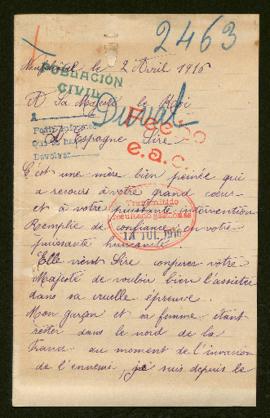 2463
le 2 Avril 1916
POBLACION
CIVIL
A Sa Majesté le Roi
Duval
d'Espagne Sire
e.a.c.
C'est une mère bien peinée qui
a recours à votre grand cœur
et à votre puissante intervention
Remplie de confiance en votre
puissante humanité
Transmitido
14 JUL. 1916
Elle vient Sire conjurer votre
Majesté de vouloir bien l'assister
dans sa cruelle épreuve.
Mon garçon et sa femme étant
rester dans le nord de la
France au moment de l'invasion
de l'ennemi, je suis depuis le